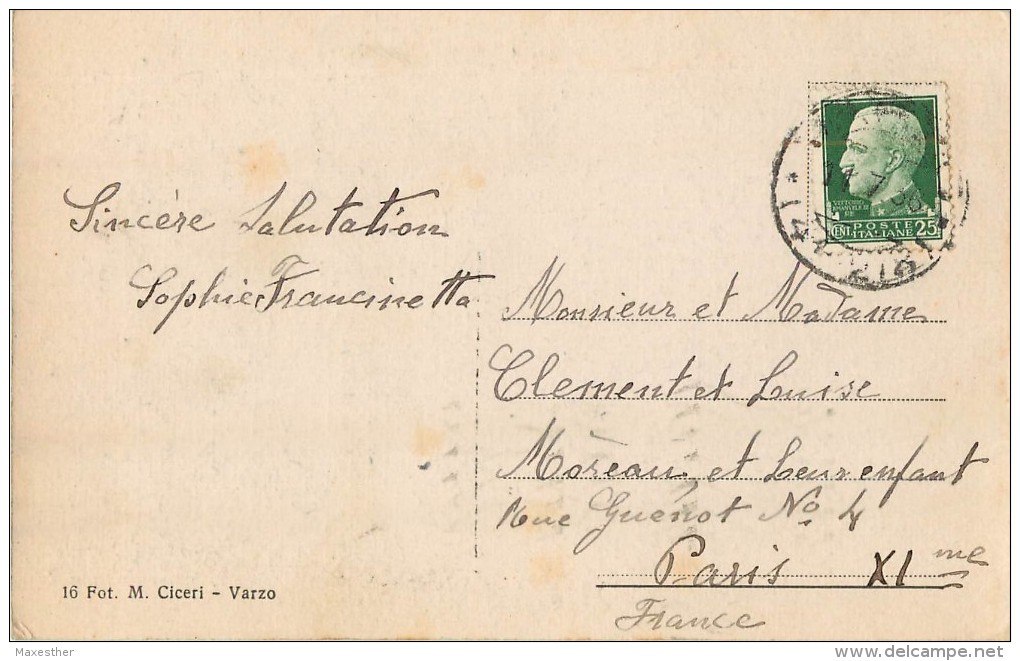 Sincére Salutation
Sophie Francinetta
VITTORIO
EMANUELE III
RE
POSTE
CENT. ITALIANE 25
Monsieur et Madame
Clement et Luise
Moreau et Leur enfant
Rue Guénot No. 4
Paris XI me
France
16 Fot. M. Ciceri - Varzo
Maxesther
www.delcampe.net